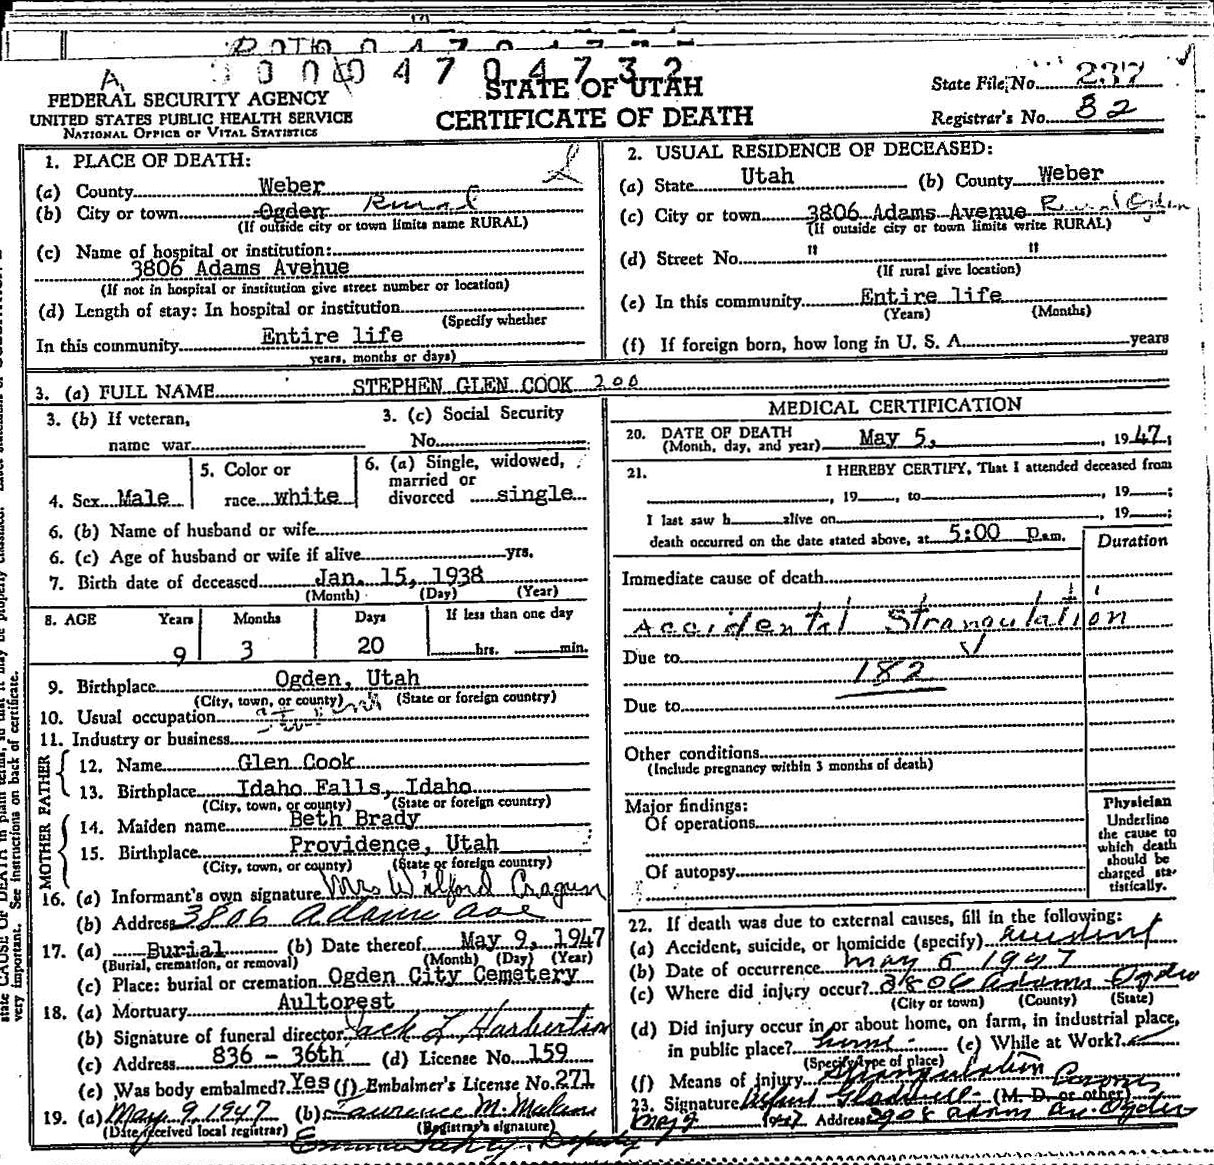 A 0004704732
FEDERAL SECURITY AGENCY
UNITED STATES PUBLIC HEALTH SERVICE
NATIONAL OFFICE OF VITAL STATISTICS
STATE OF UTAH
CERTIFICATE OF DEATH
State File No. 237
Registrar's No. 82
1. PLACE OF DEATH:
(a) County Weber
(b) City or town Ogden Rural
(If outside city or town limits name RURAL)
(c) Name of hospital or institution:
3806 Adams Avenue
(If not in hospital or institution give street number or location)
(d) Length of stay: In hospital or institution
(Specify whether
In this community Entire life
years, months or days)
2. USUAL RESIDENCE OF DECEASED:
(a) State Utah (b) County Weber
(c) City or town 3806 Adams Avenue Rural Ogden
(If outside city or town limits write RURAL)
(d) Street No. " "
(If rural give location)
(e) In this community Entire life
(Years) (Months)
(f) If foreign born, how long in U. S. A. years
3. (a) FULL NAME STEPHEN GLEN COOK 200
3. (b) If veteran,
name war
3. (c) Social Security
No.
4. Sex Male
5. Color or
race white
6. (a) Single, widowed,
married or
divorced single
6. (b) Name of husband or wife
6. (c) Age of husband or wife if alive yrs.
7. Birth date of deceased Jan. 15, 1938
(Month) (Day) (Year)
8. AGE Years Months Days If less than one day
9 3 20 hrs. min.
9. Birthplace Ogden, Utah
(City, town, or county) (State or foreign country)
10. Usual occupation
11. Industry or business
FATHER
12. Name Glen Cook
13. Birthplace Idaho Falls, Idaho
(City, town, or county) (State or foreign country)
MOTHER
14. Maiden name Beth Brady
15. Birthplace Providence, Utah
(City, town, or county) (State or foreign country)
16. (a) Informant's own signature Mrs Wilford Cragun
(b) Address 3806 Adams Ave
17. (a) Burial (b) Date thereof May 9, 1947
(Burial, cremation, or removal) (Month) (Day) (Year)
(c) Place: burial or cremation Ogden City Cemetery
18. (a) Mortuary Aultorest
(b) Signature of funeral director Jack L Harbertson
(c) Address 836 - 36th (d) License No. 159
(e) Was body embalmed? Yes (f) Embalmer's License No. 271
19. (a) May 9, 1947 (b) Laurence M. Malan
(Date received local registrar) (Registrar's signature)
Deputy
MEDICAL CERTIFICATION
20. DATE OF DEATH
(Month, day, and year) May 5, 1947
21. I HEREBY CERTIFY, That I attended deceased from
, 19 , to , 19 ;
I last saw h alive on , 19 ;
death occurred on the date stated above, at 5:00 p.m.
Duration
Immediate cause of death
Accidental Strangulation
Due to
182
Due to
Other conditions
(Include pregnancy within 3 months of death)
Major findings:
Of operations
Of autopsy
Physician
Underline
the cause to
which death
should be
charged sta-
tistically.
22. If death was due to external causes, fill in the following:
(a) Accident, suicide, or homicide (specify) Accident
(b) Date of occurrence May 5 1947
(c) Where did injury occur? 3806 Adams Ogden
(City or town) (County) (State)
(d) Did injury occur in or about home, on farm, in industrial place,
in public place? home (e) While at Work?
(Specify type of place)
(f) Means of Injury Strangulation Coroner
23. Signature (M. D. or other)
May 9 1947 Address 2908 Adams Av. Ogden
very important. See instructions on back of certificate.